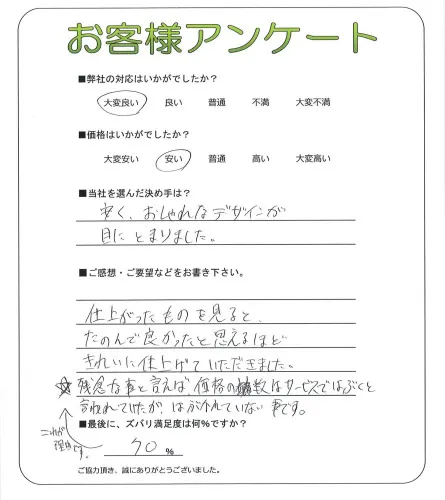 お客様アンケート
■弊社の対応はいかがでしたか?
大変良い 良い 普通 不満 大変不満
■価格はいかがでしたか?
大変安い 安い 普通 高い 大変高い
■当社を選んだ決め手は?
安く、おしゃれなデザインが
目にとまりました。
■ご感想・ご要望などをお書き下さい。
仕上がったものを見ると、
たのんで良かったと思えるほど
きれいに仕上げていただきました。
☆残念な事と言えば、価格の端数はサービスではぶくと
言われていたが、はぶかれていない事です。
■最後に、ズバリ満足度は何%ですか?
これが
理由です。
90 %
ご協力頂き、誠にありがとうございました。